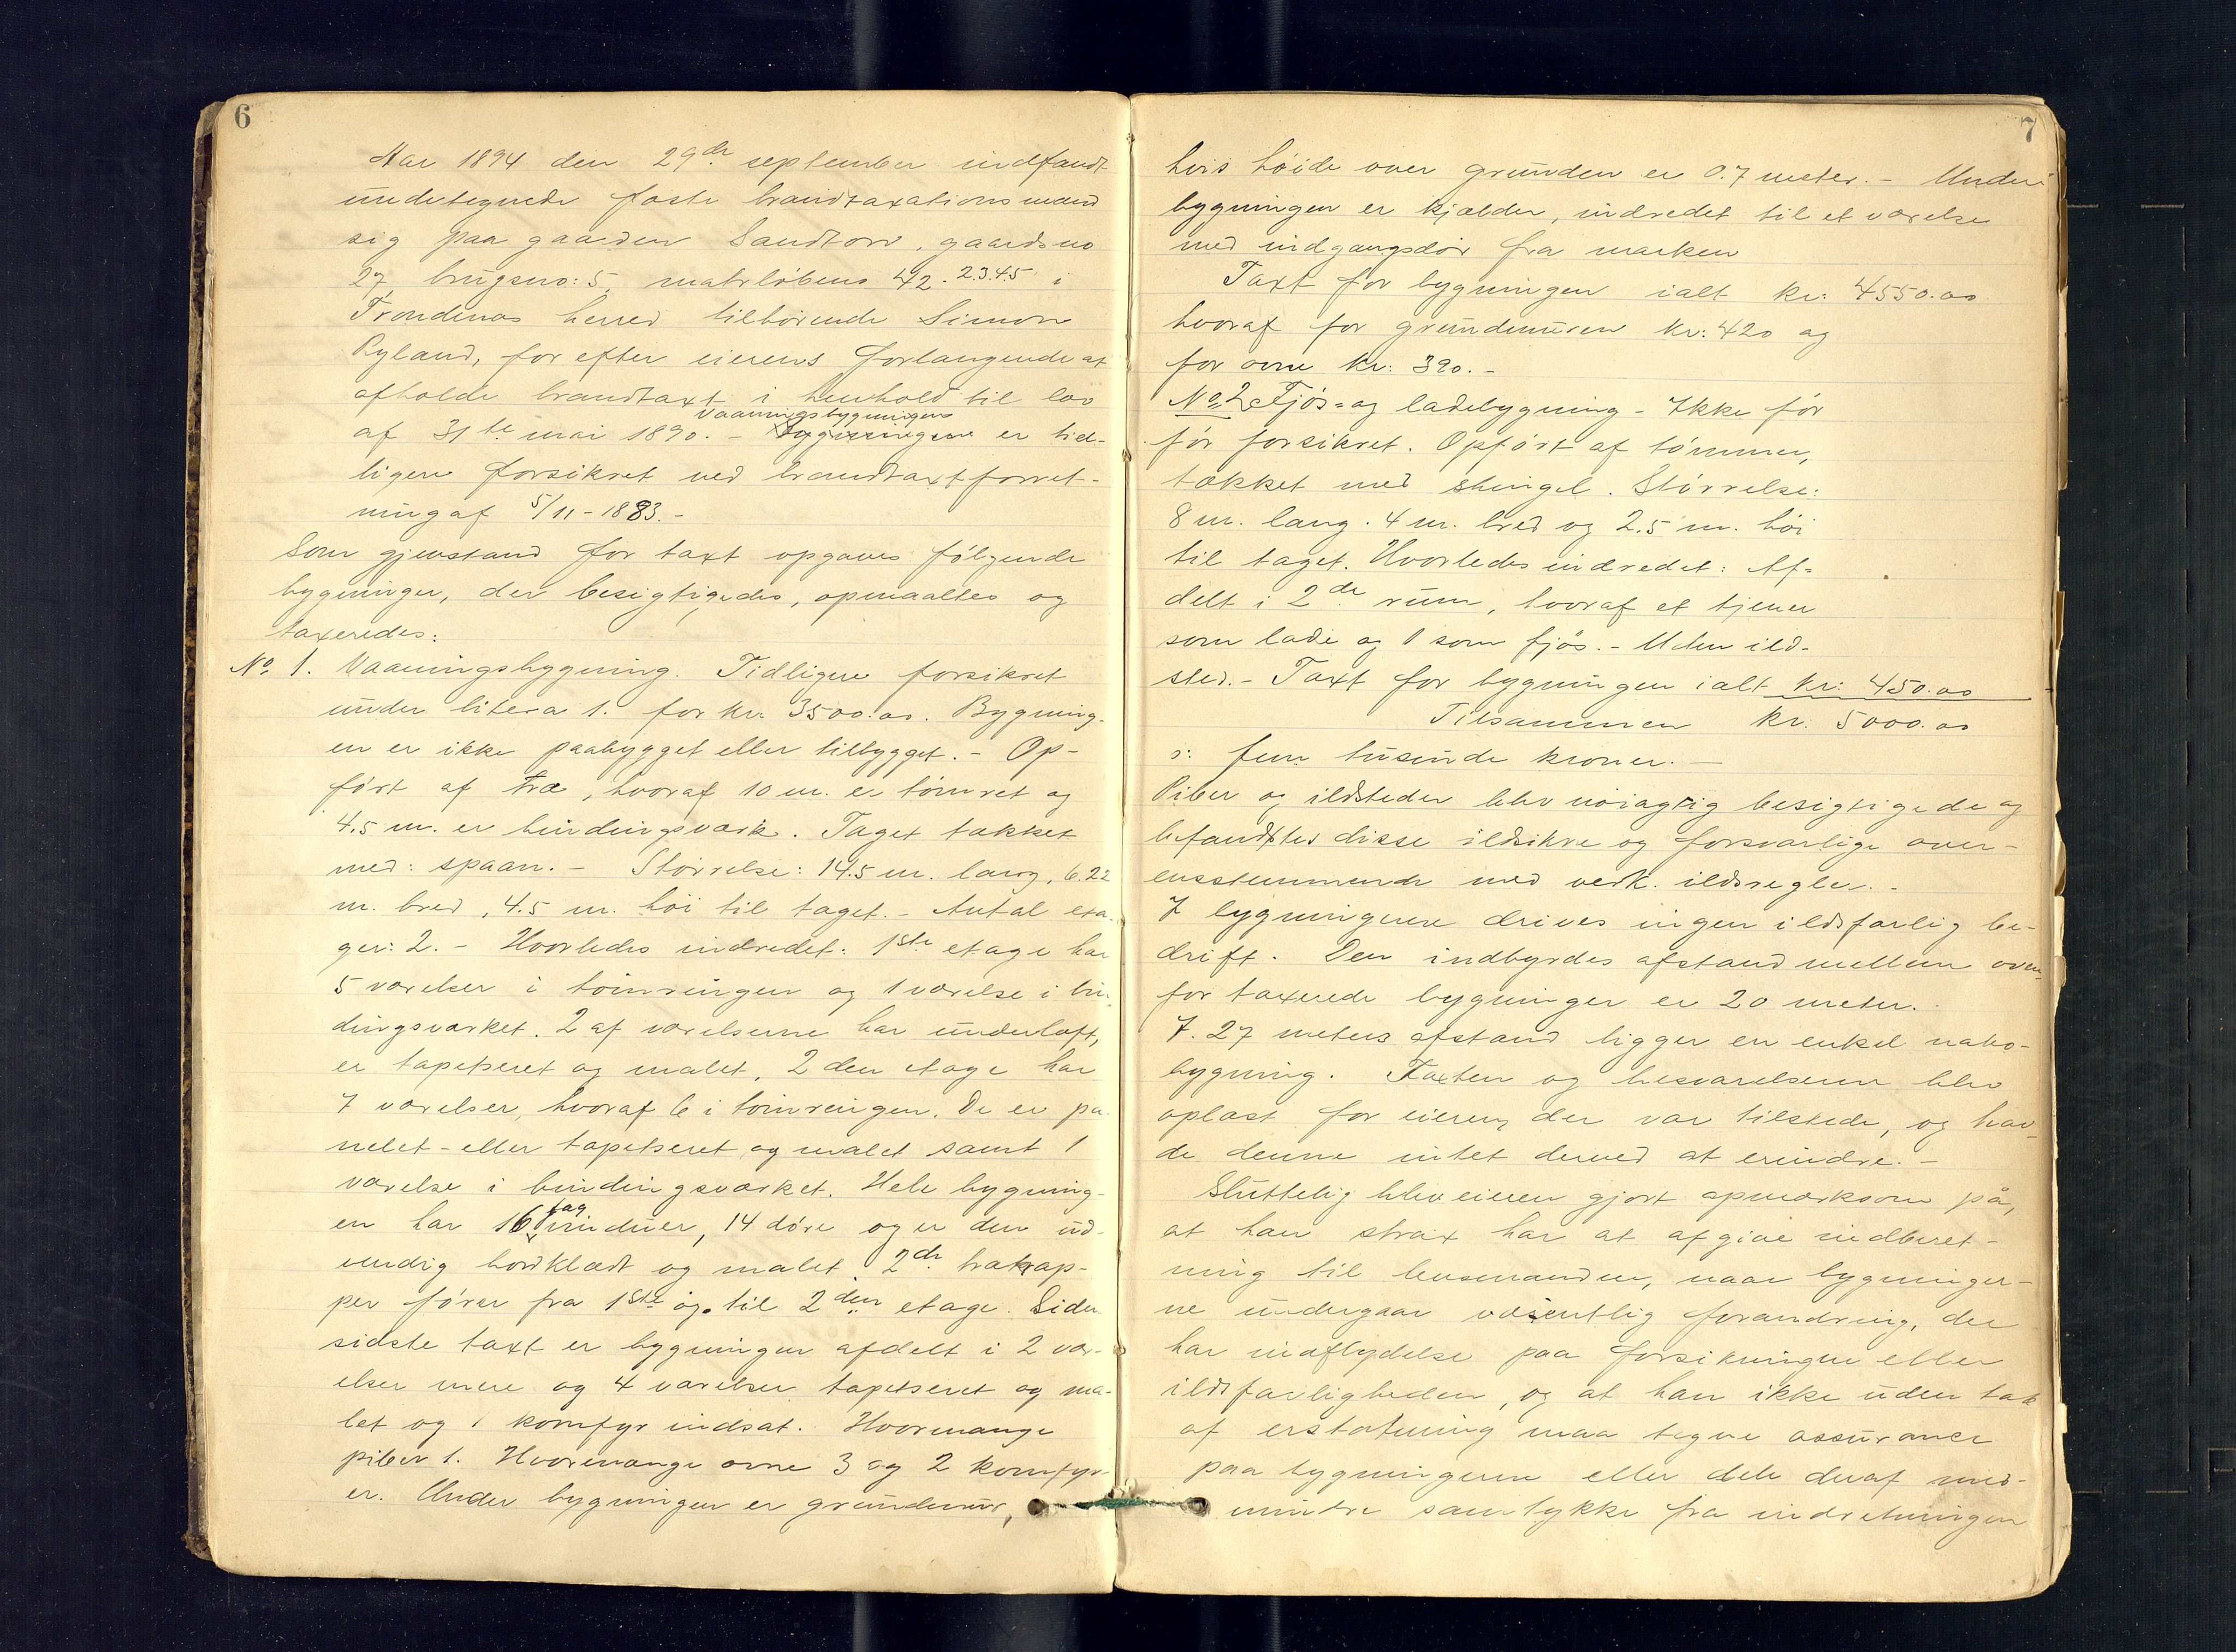 6
Aar 1894 den 29de september indfandt
undetegnede faste brandtaxationsmænd
sig paa gaarden Sandtorv, gaardsno
27, brugsno: 5, matrløbeno 42. 2.3.4.5 i
Trondenæs herred tilhørende Simon
Ryland, for efter eierens forlangende at
afholde brandtaxt i henhold til lov
Vaaningsbygningens
af 31te mai 1890. – bygningen er tid-
ligere forsikret ved brandtaxtforret-
ning af 5/11 - 1883. –
Som gjenstand for taxt opgaves følgende
bygninger, der besigtigedes, opmaaltes og
taxeredes:
No 1. Vaaningsbygning. Tidligere forsikret
under litera 1. for kr. 3500.00. Bygning-
en er ikke paabygget eller tilbygget. – Op-
ført af træ, hvoraf 10 m. er tømret og
4.5 m. er bindingsværk. Taget tækket
med: spaan. – Størrelse: 14.5 m. lang, 6.22
m. bred, 4.5 m. høi til taget. – Antal eta-
ger: 2. – Hvorledes indredet: 1ste etage har
5 værelser i tømringen og 1 værelse i bin-
dingsværket. 2 af værelserne har underloft,
er tapetseret og malet. 2den etage har
7 værelser, hvoraf 6 i tømringen. De er pa-
nelet - eller tapetseret og malet samt 1
værelse i bindingsværket. Hele bygning-
fag
en har 16 vinduer, 14 døre og er den ud-
vendig bordklædt og malet. 2de trætrap-
per fører fra 1ste og til 2den etage. Siden
sidste taxt er bygningen afdelt i 2 vær-
elser mere og 4 værelser tapetseret og ma-
let og 1 komfyr indsat. Hvormange
piber 1. Hvormange ovne 3 og 2 komfyr-
er. Under bygningen er grundmur,
7
hvis høide over grunden er 0.7 meter. – Under
bygningen er kjælder, indredet til et værelse
med indgangsdør fra marken
Taxt for bygningen ialt kr: 4550.00
hvoraf for grundmuren kr: 420 og
for ovne kr: 390. –
No 2. Fjøs- og ladebygning – Ikke før
før forsikret. Opført af tømmer,
tækket med shingel. Størrelse:
8 m. lang. 4 m. bred og 2.5 m. høi
til taget. Hvorledes indredet: Af-
delt i 2de rum, hvoraf et tjener
som lade og 1 som fjøs. – Uden ild-
sted. – Taxt for bygningen ialt kr: 450.00
Tilsammen kr. 5000.00
ɔ: fem tusinde kroner. –
Piber og ildsteder blev nøiagtig besigtigede og
befandtes disse ildsikre og forsvarlige over-
ensstemmende med vedk. ildsregler. –
I bygningerne drives ingen ildsfarlig be-
drift. Den indbyrdes afstand mellem oven-
for taxerede bygninger er 20 meter.
I 27 meters afstand ligger en enkel nabo-
bygning. Taxten og besvarelserne blev
oplæst for eieren, der var tilstede, og hav-
de denne intet derved at erindre. –
Sluttelig blev eieren gjort opmærksom på,
at han strax har at afgive indberet-
ning til lensmanden, naar bygninger-
ne undergaar væsentlig forandring, der
har indflydelse paa forsikringen eller
ildsfarligheden, og at han ikke uden tab
af erstatning maa tegne assurance
paa bygningerne eller dele deraf med-
mindre samtykke fra indretningen